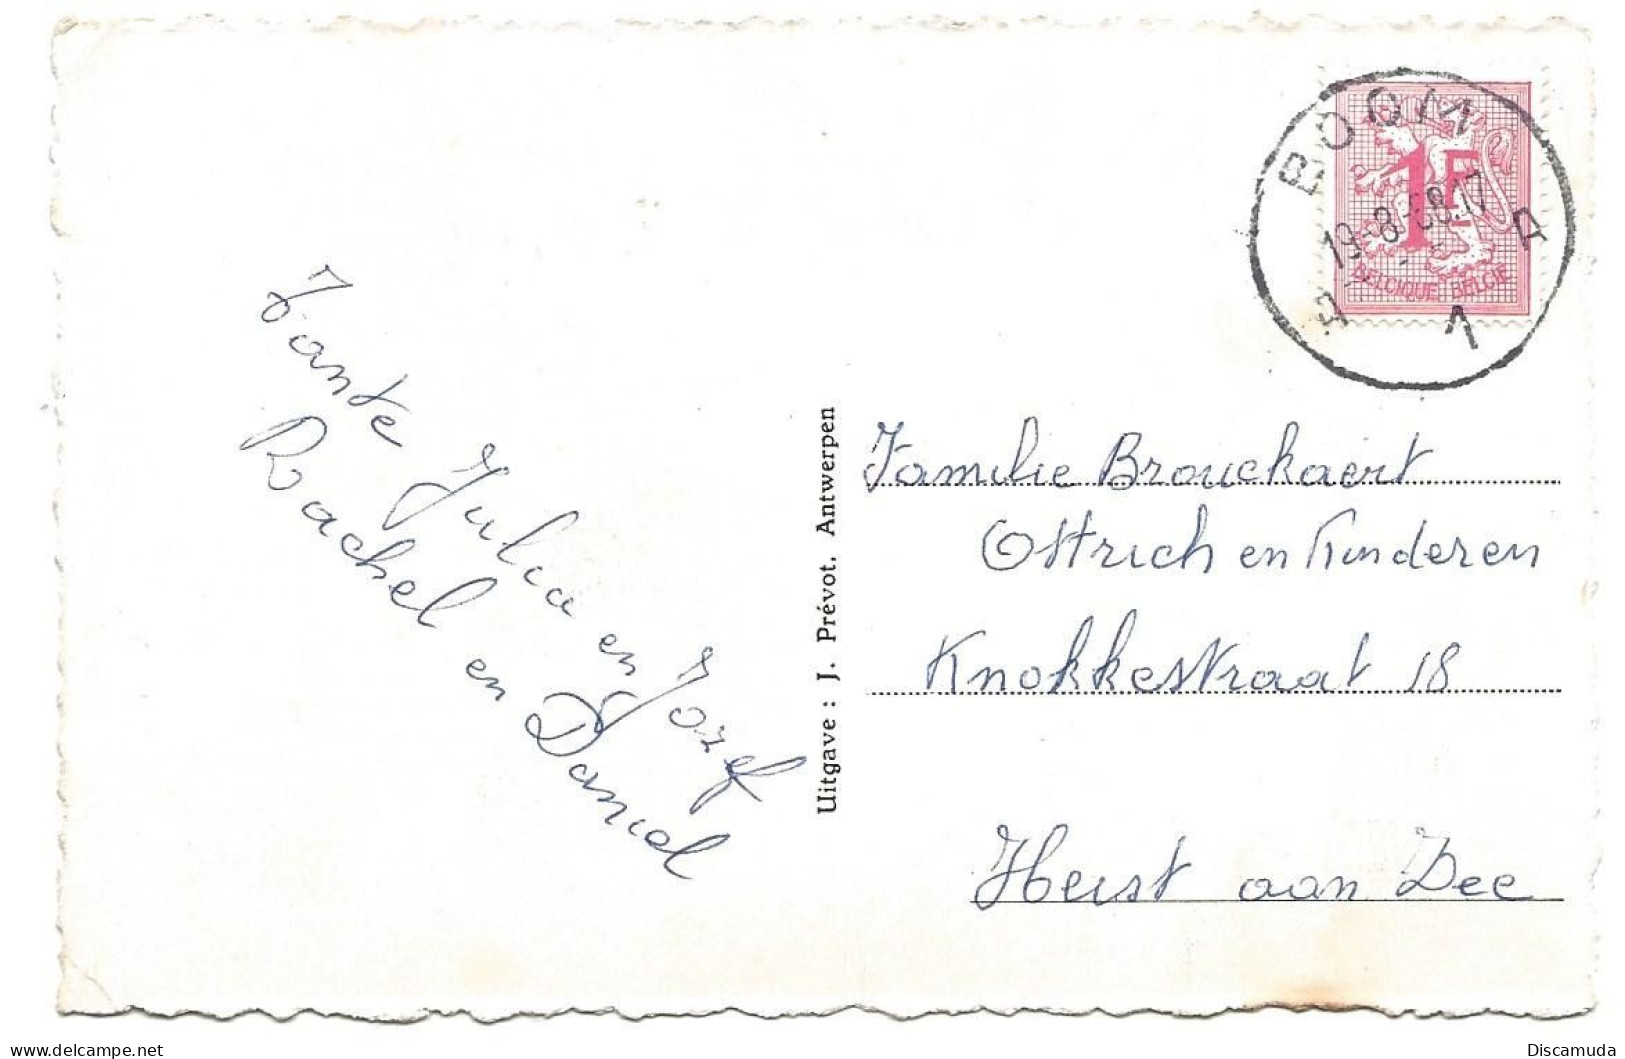 Tante Julia en Jozef
Rachel en Daniel
Uitgave : J. Prévot. Antwerpen
BOOM
19-8-68.17
A
A
1
1F
BELGIQUE BELGIË
Familie Brouckaert
Ostrich en Kinderen
Knokkestraat 18
Heist aan Zee
www.delcampe.net
Discamuda